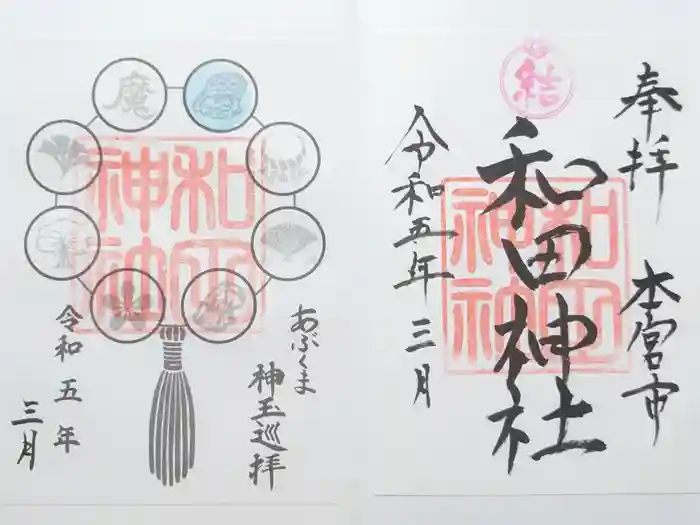 奉拝
本宮市
結
和田神社
和田神社
令和五年
三月
魔
和田神社
あぶくま
神玉巡拝
令和五年
三月